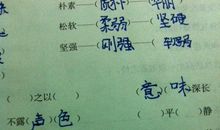 朴素——( )——(华丽)
松软——(柔弱)——(坚硬)
坚强——(刚强)——( )
( )之以( ) (意)(味)深长
不露(声)(色) ( )平( )静